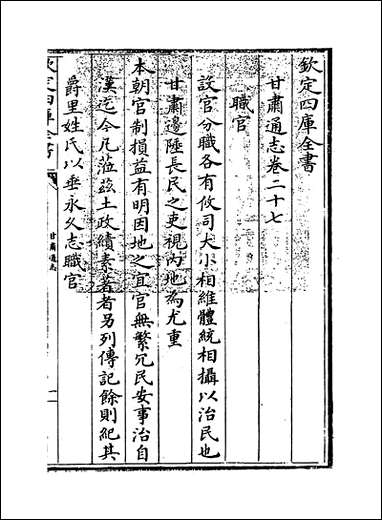 欽定四庫全書
甘肅通志卷二十七
職官
設官分職各有攸司大小相維體統相攝以治民也
甘肅邊陲長民之吏視内地為尤重
本朝官制損益有明因地之宜官無繁冗民安事治自
漢迄今凡蒞茲土政績素著者另列傳記餘則紀其
爵里姓氏以垂永久志職官
欽定四庫全書
甘肅通志
一